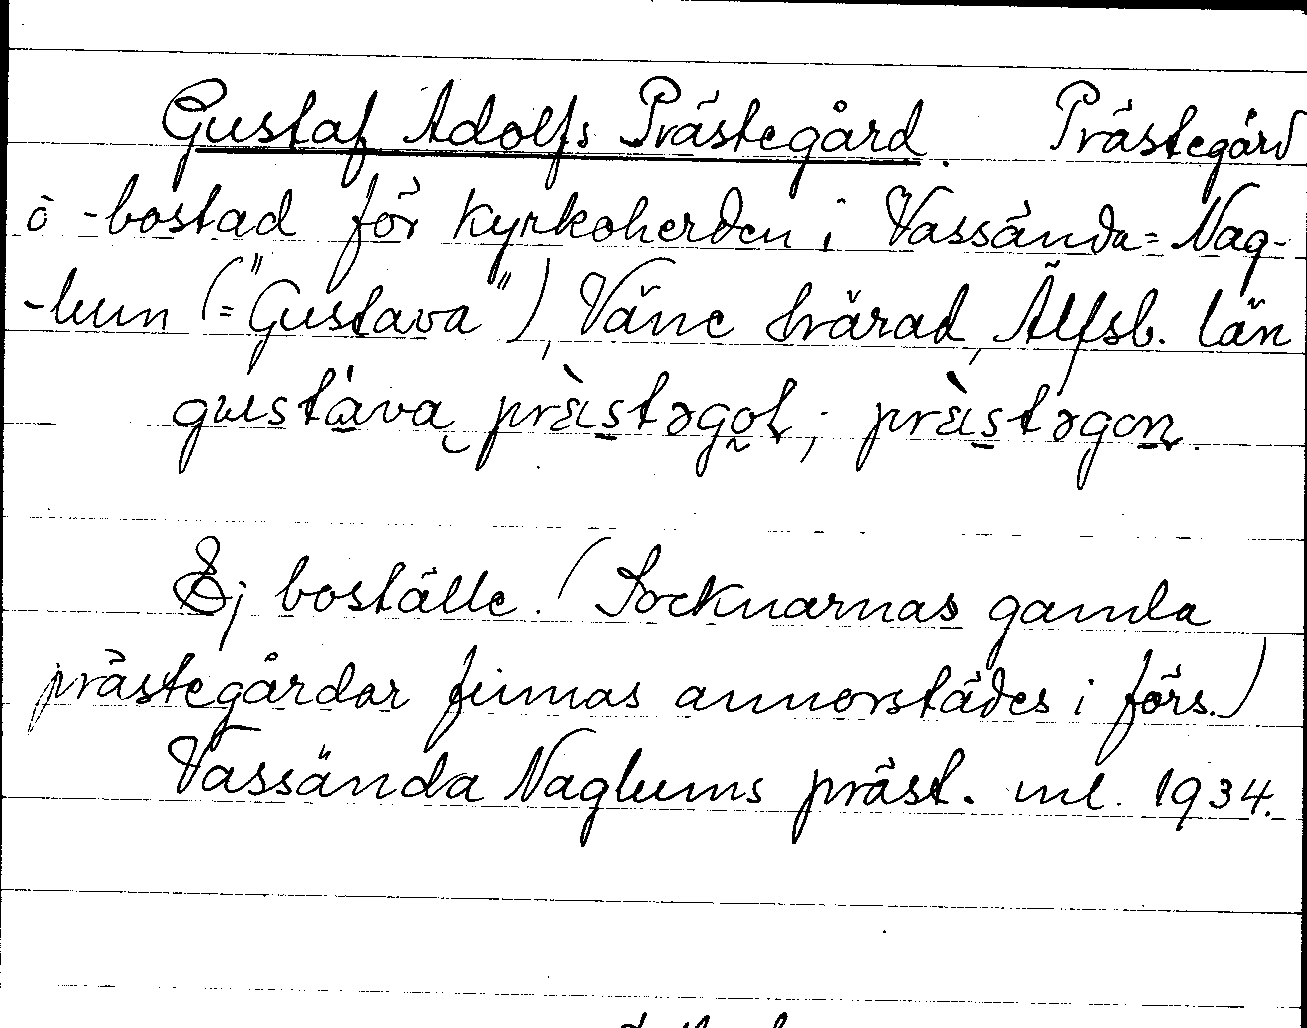 Gustaf Adolfs Prästegård. Prästegård
o -bostad för kyrkoherden i Vassända=Nag-
-lum (="Gustava"), Väne härad, Älfsb. län
gustàva prɛ̀istəgoḷ; prɛ̀istəgoṇ.
Ej boställe. (Socknarnas gamla
prästegårdar finnas annorstädes i förs.)
Vassända Naglums präst. ml. 1934.